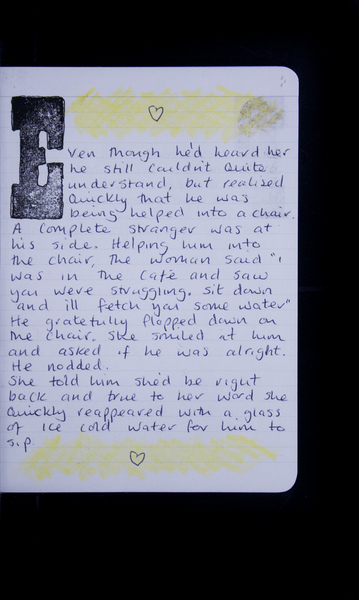 Even though he'd heard her
he still couldn't quite
understand, but realised
quickly that he was
being helped into a chair.
A complete stranger was at
his side. Helping him into
the chair, the woman said "I
was in the café and saw
you were struggling. Sit down
and ill fetch you some water"
He gratefully flopped down on
the chair. She smiled at him
and asked if he was alright.
He nodded.
She told him she'd be right
back and true to her word she
quickly reappeared with a glass
of ice cold water for him to
sip